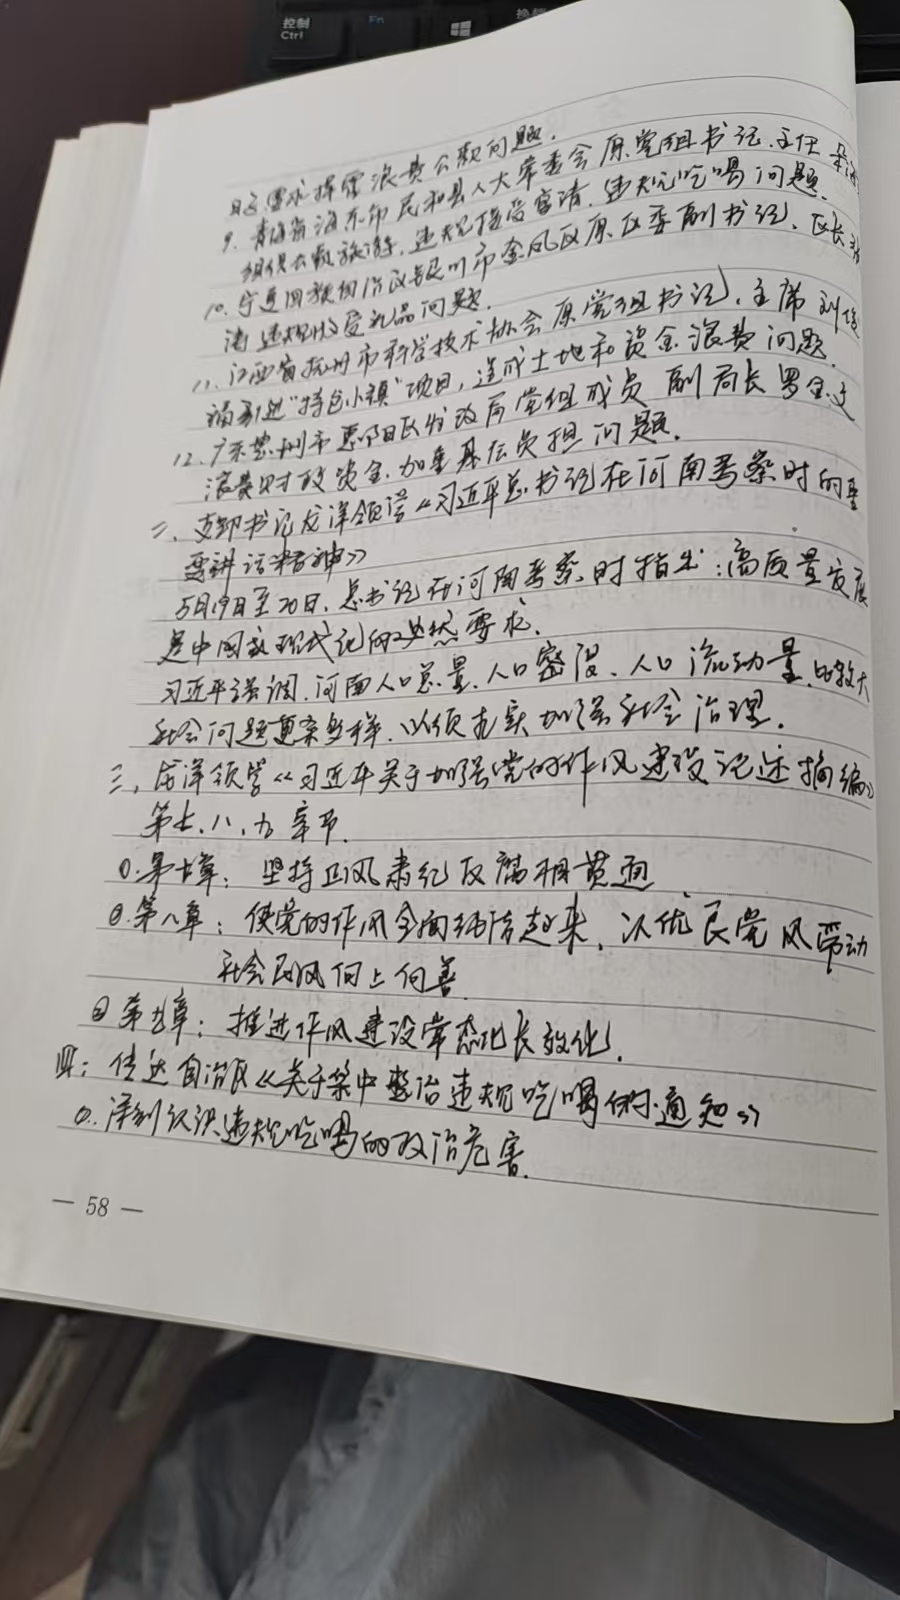 控制
Ctrl
Fn
挥霍浪费公款问题.
9. 青海省海东市民和县人大常委会原党组书记.主任
组织公款旅游、违规接受宴请、违规吃喝问题.
10. 宁夏回族自治区银川市金凤区原区委副书记、区长
涛违规收受礼品问题.
11. 江西省抚州市科学技术协会原党组书记、主席刘
福引进“特色小镇”项目,造成土地和资金浪费问题.
12. 广东惠州市惠阳区发改局党组成员副局长罗金文
浪费财政资金.加重基层负担问题.
二、支部书记龙洋领学《习近平总书记在河南考察时的重
要讲话精神》
5月19日至20日.总书记在河南考察时指出:高质量发展
是中国式现代化的必然要求.
习近平强调.河南人口总量.人口密度、人口流动量.比较大
社会问题更杂多样.必须扎实加强社会治理.
三、龙洋领学《习近平关于加强党的作风建设论述摘编》
第七.八.九章节.
①.第七章: 坚持正风肃纪反腐相贯通
②.第八章: 使党的作风全面纯洁起来、以优良党风带动
社会民风向上向善.
③第九章: 推进作风建设常态化长效化.
四: 传达自治区《关于集中整治违规吃喝的通知》
①.深刻认识违规吃喝的政治危害.
— 58 —